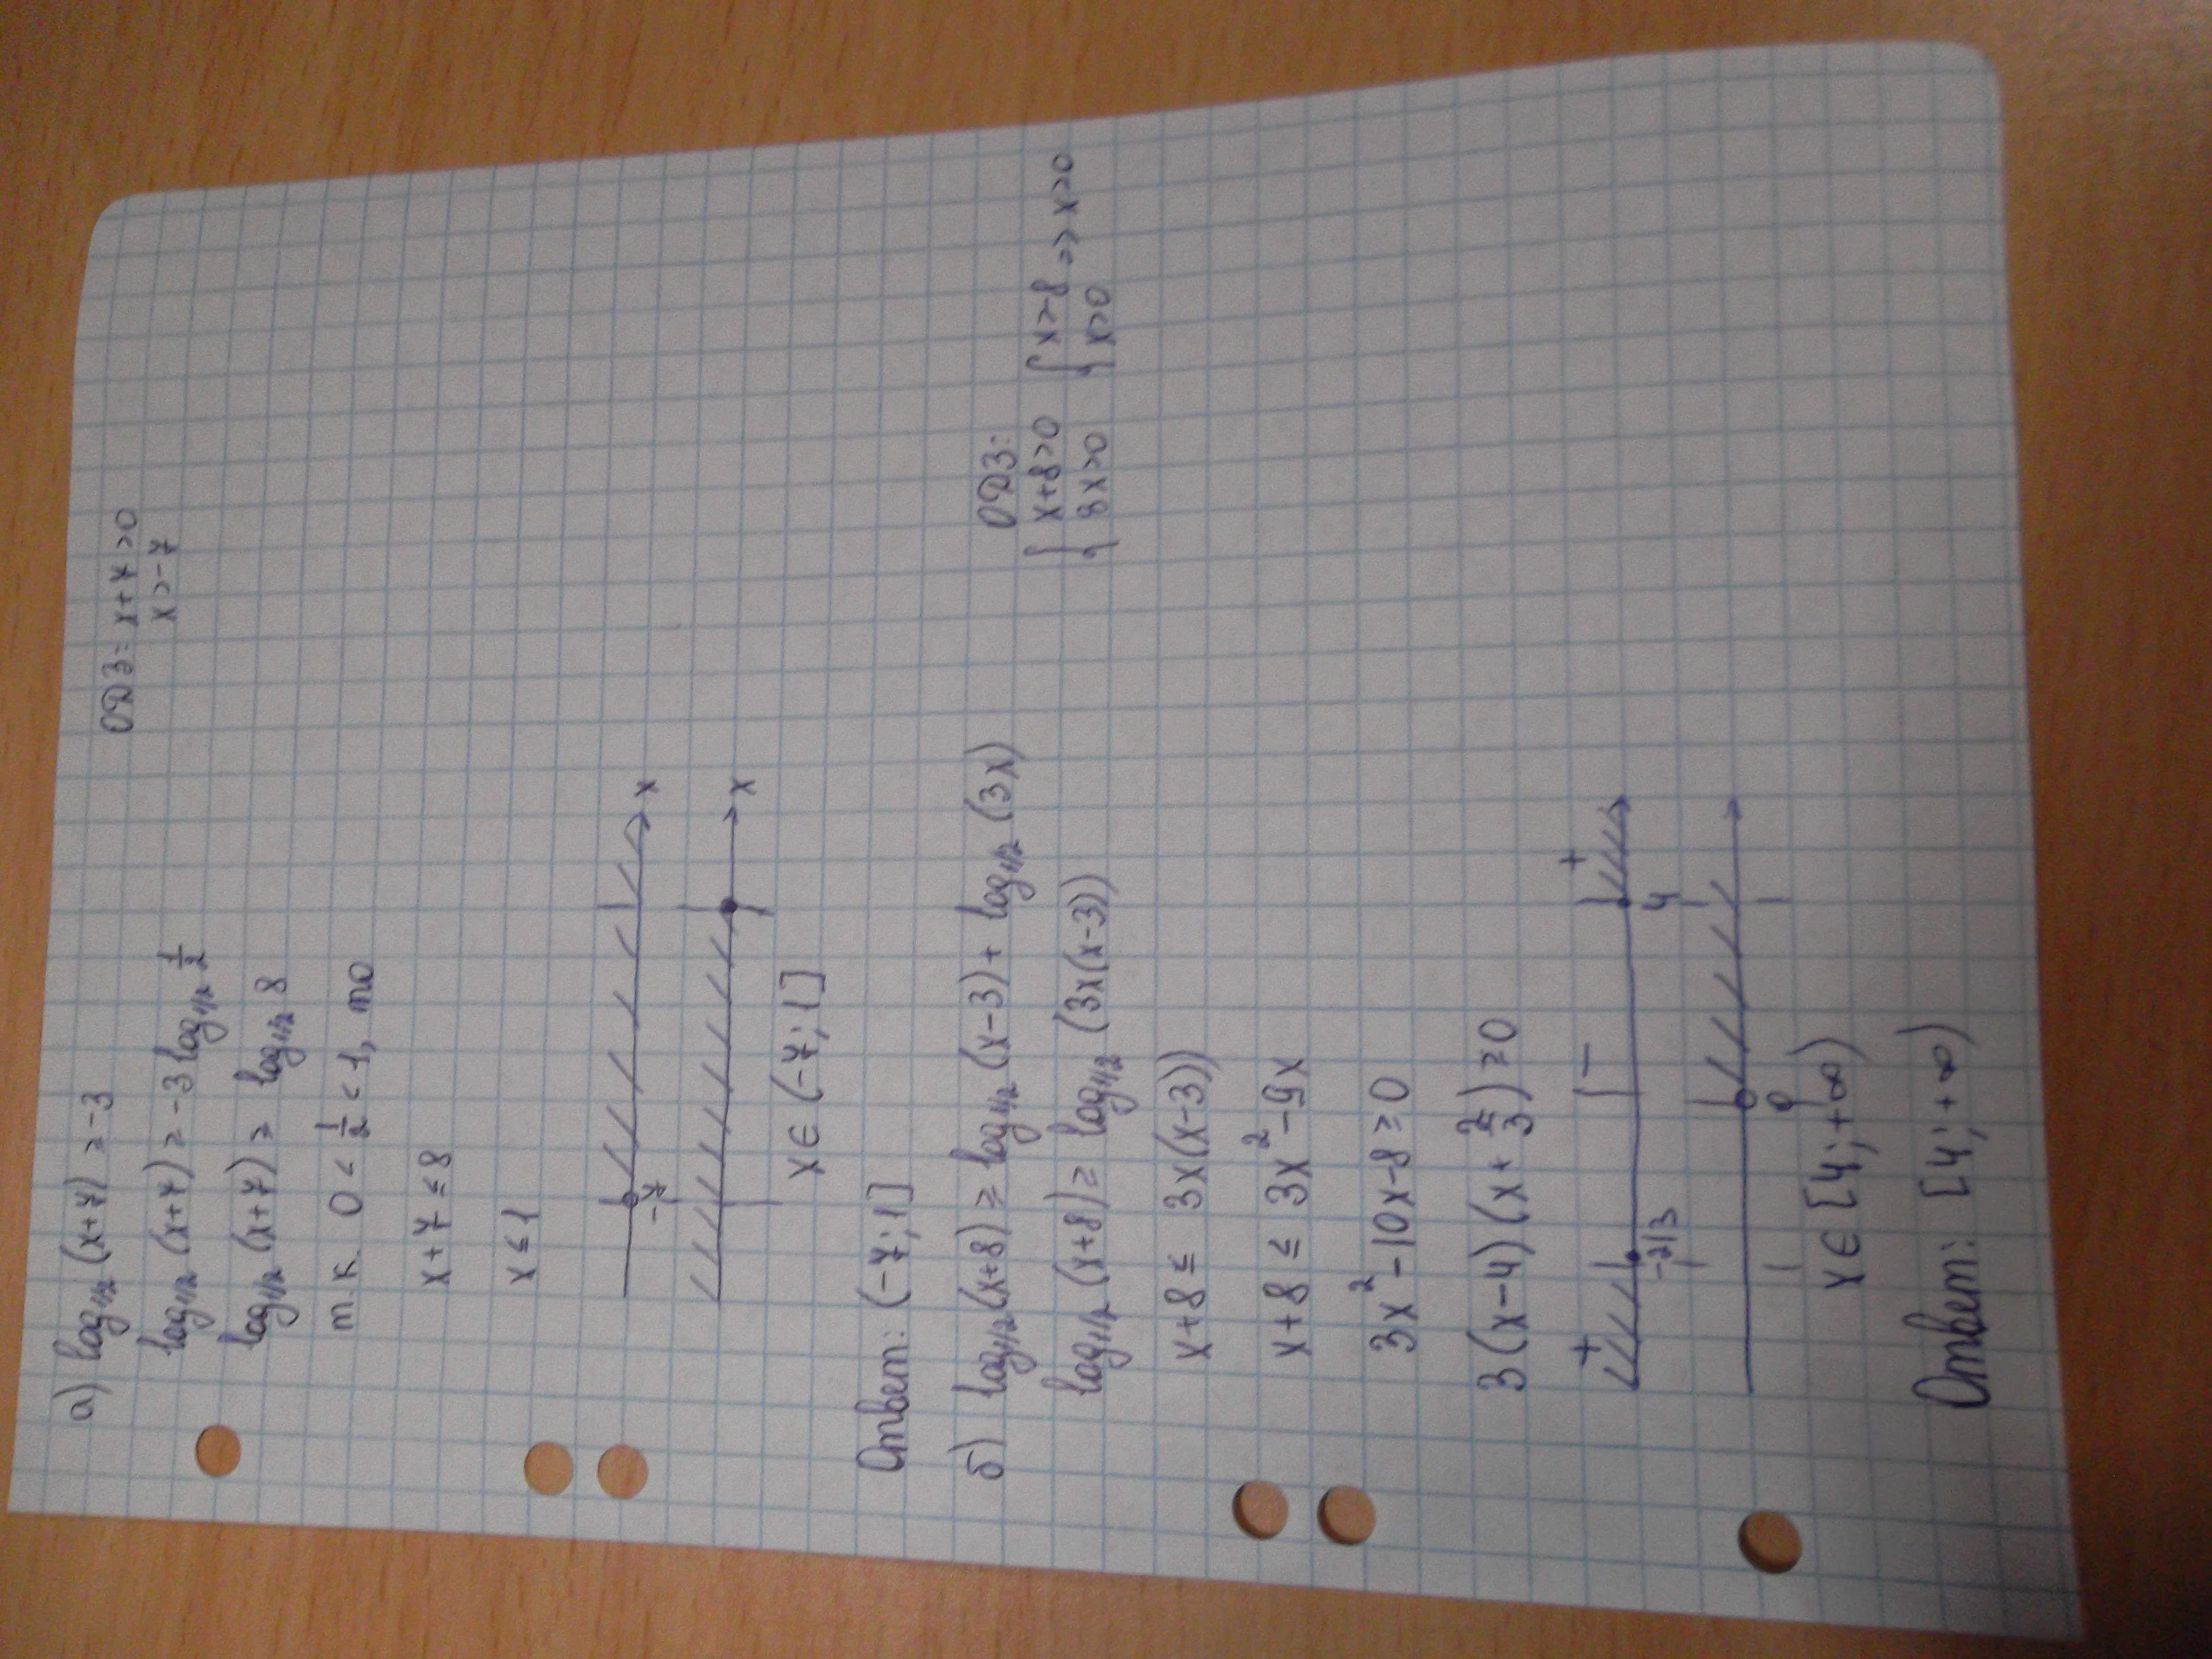 а) log₁/₂ (x+7) ≥ -3
ОДЗ: x+7>0
x>-7
log₁/₂ (x+7) ≥ -3 log₁/₂ 1/2
log₁/₂ (x+7) ≥ log₁/₂ 8
т.к. 0 < 1/2 < 1, то
x+7 ≤ 8
x ≤ 1
x
-7
x
1
x ∈ (-7; 1]
Ответ: (-7; 1]
б) log₁/₂ (x+8) ≥ log₁/₂ (x-3) + log₁/₂ (3x)
ОДЗ:
{ x+8>0 { x>-8 => x>0
{ 3x>0 { x>0
log₁/₂ (x+8) ≥ log₁/₂ (3x(x-3))
x+8 ≤ 3x(x-3))
x+8 ≤ 3x² -9x
3x² -10x-8 ≥ 0
3(x-4)(x+2/3) ≥ 0
+ - +
-2/3 4
0
x ∈ [4; +∞)
Ответ: [4; +∞)